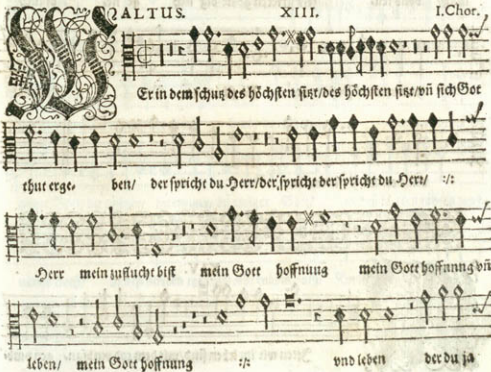 ALTUS. XIII. I. Chor.
WEr in dem schutz des höchsten sitzt/des höchsten sitzt/vñ sich Got
thut erge- ben/ der spricht du Herr/der spricht der spricht du Herr/ :/:
Herr mein zuflucht bist mein Gott hoffnuug mein Gott hoffnung vñ
leben/ mein Gott hoffnung :/: vnd leben der du ja